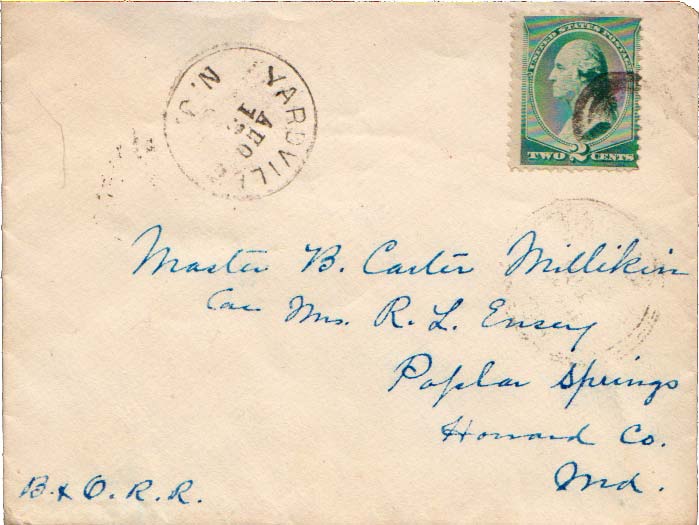 YARDVILLE
N.J.
UNITED STATES POSTAGE
TWO 2 CENTS
Master B. Carter Millikin
Care Mrs. R. L. Ensey
Poplar Springs
Howard Co.
Md.
B. & O. R. R.